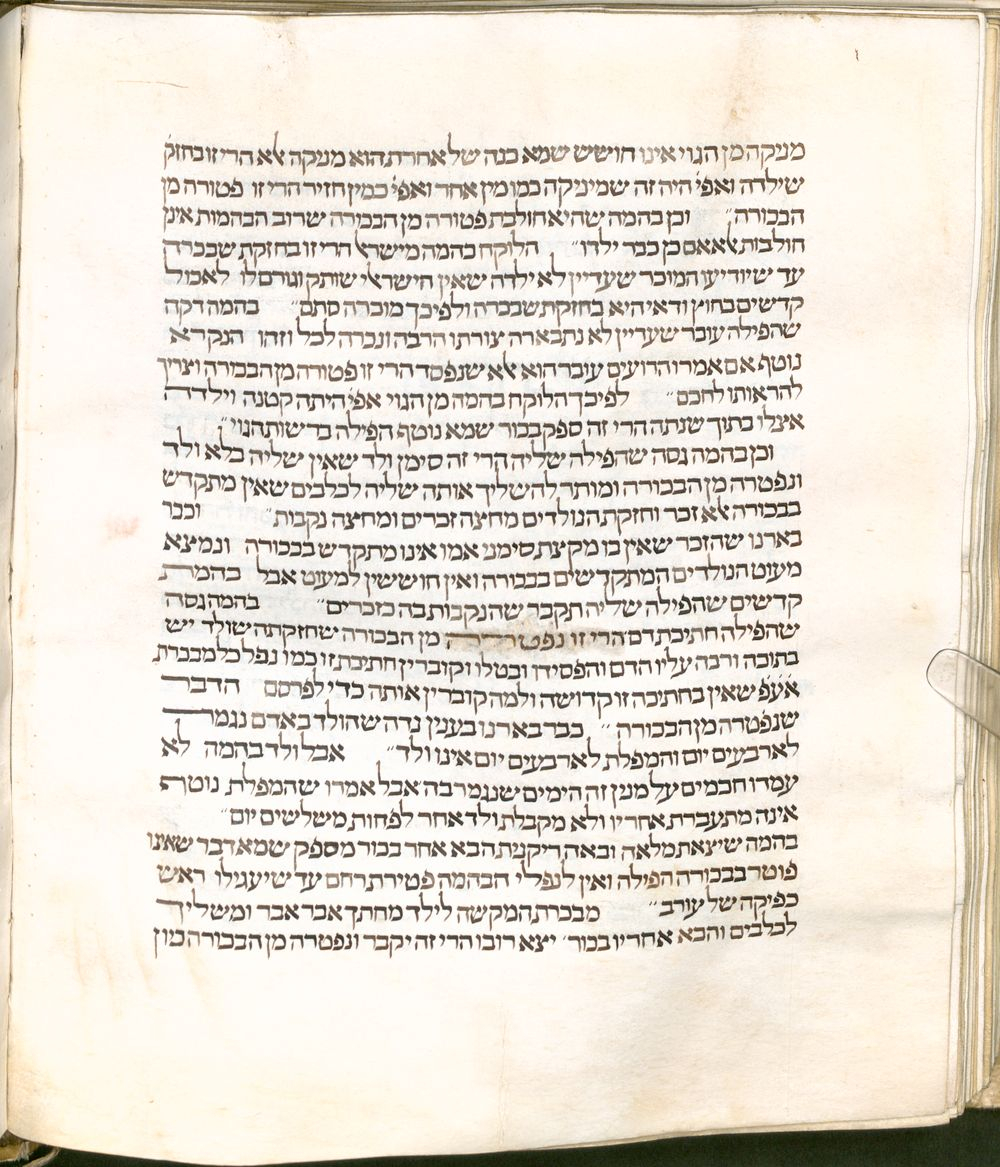 מניקה מן הגוי אינו חושש שמא בנה של אחרת הוא מניקה אלא הרי זו בחזק׳
שילדה ואפי׳ היה זה שמיניקה כמו מין אחר ואפי׳ כמין חזיר הרי זו פטורה מן
הבכורה״ וכן בהמה שהיא חולבת פטורה מן הבכורה שרוב הבהמות אינן
חולבות אלא אם כן כבר ילדו״ הלוקח בהמה מישראל הרי זו בחזקת שבכרה
עד שיודיעו המוכר שעדיין לא ילדה שאין הישראלי שותק וגורם לו לאכול
קדשים בחוץ ודאי היא בחזקת שבכרה ולפיכך מוכרה סתם״ בהמה דקה
שהפילה עובר שעדיין לא נתבארה צורתו הרבה ונכרה לכל וזהו הנקרא
נוטף אם אמרו הרועים עובר הוא אלא שנפסד הרי זו פטורה מן הבכורה וצריך
להראותו לחכם״ לפיכך הלוקח בהמה מן הגוי אפי׳ היתה קטנה וילדה
אצלו בתוך שנתה הרי זה ספק בכור שמא נוטף הפילה ברשות הגוי״
וכן בהמה גסה שהפילה שליה הרי זה סימן ולד שאין שליה בלא ולד
ונפטרה מן הבכורה ומותר להשליך אותה שליה לכלבים שאין מתקדש
בבכורה אלא זכר וחזקת הנולדים מחצה זכרים ומחצה נקבות״ וכבר
בארנו שהזכר שאין בו מקצת סימני אמו אינו מתקדש בבכורה ונמצא
מעוט הנולדים המתקדשים בבכורה ואין חוששין למעוט אבל בהמת
קדשים שהפילה שליה תקבר שהנקבות בה כזכרים״ בהמה גסה
שהפילה חתיכת דם הרי זו נפטרה מן הבכורה שחזקתה שולד יש
בתוכה ורבה עליו הדם והפסידו ובטלו וקוברין חתיכת זו כמו נפל כל מבכרת
אע״פ שאין בחתיכה זו קדושה ולמה קוברין אותה כדי לפרסם הדבר
שנפטרה מן הבכורה״ כבר בארנו בענין נדה שהולד באדם נגמר
לארבעים יום והמפלת לארבעים יום אינו ולד״ אבל ולד בהמה לא
עמדו חכמים על מנין זה הימים שנגמר בה אבל אמרו שהמפלת נוטף
אינה מתעברת אחריו ולא מקבלת ולד אחר לפחות משלשים יום״
בהמה שיצאת מלאה ובאה ריקנית הבא אחר בכור מספק שמא דבר שאינו
פוטר בבכורה הפילה ואין לנפלי הבהמה פטירת רחם עד שיעגילו ראש
כפיקה של עורב״ מבכרת המקשה לילד מחתך אבר אבר ומשליך
לכלבים והבא אחריו בכור׳ יצא רובו הרי זה יקבר ונפטרה מן הבכורה כיון